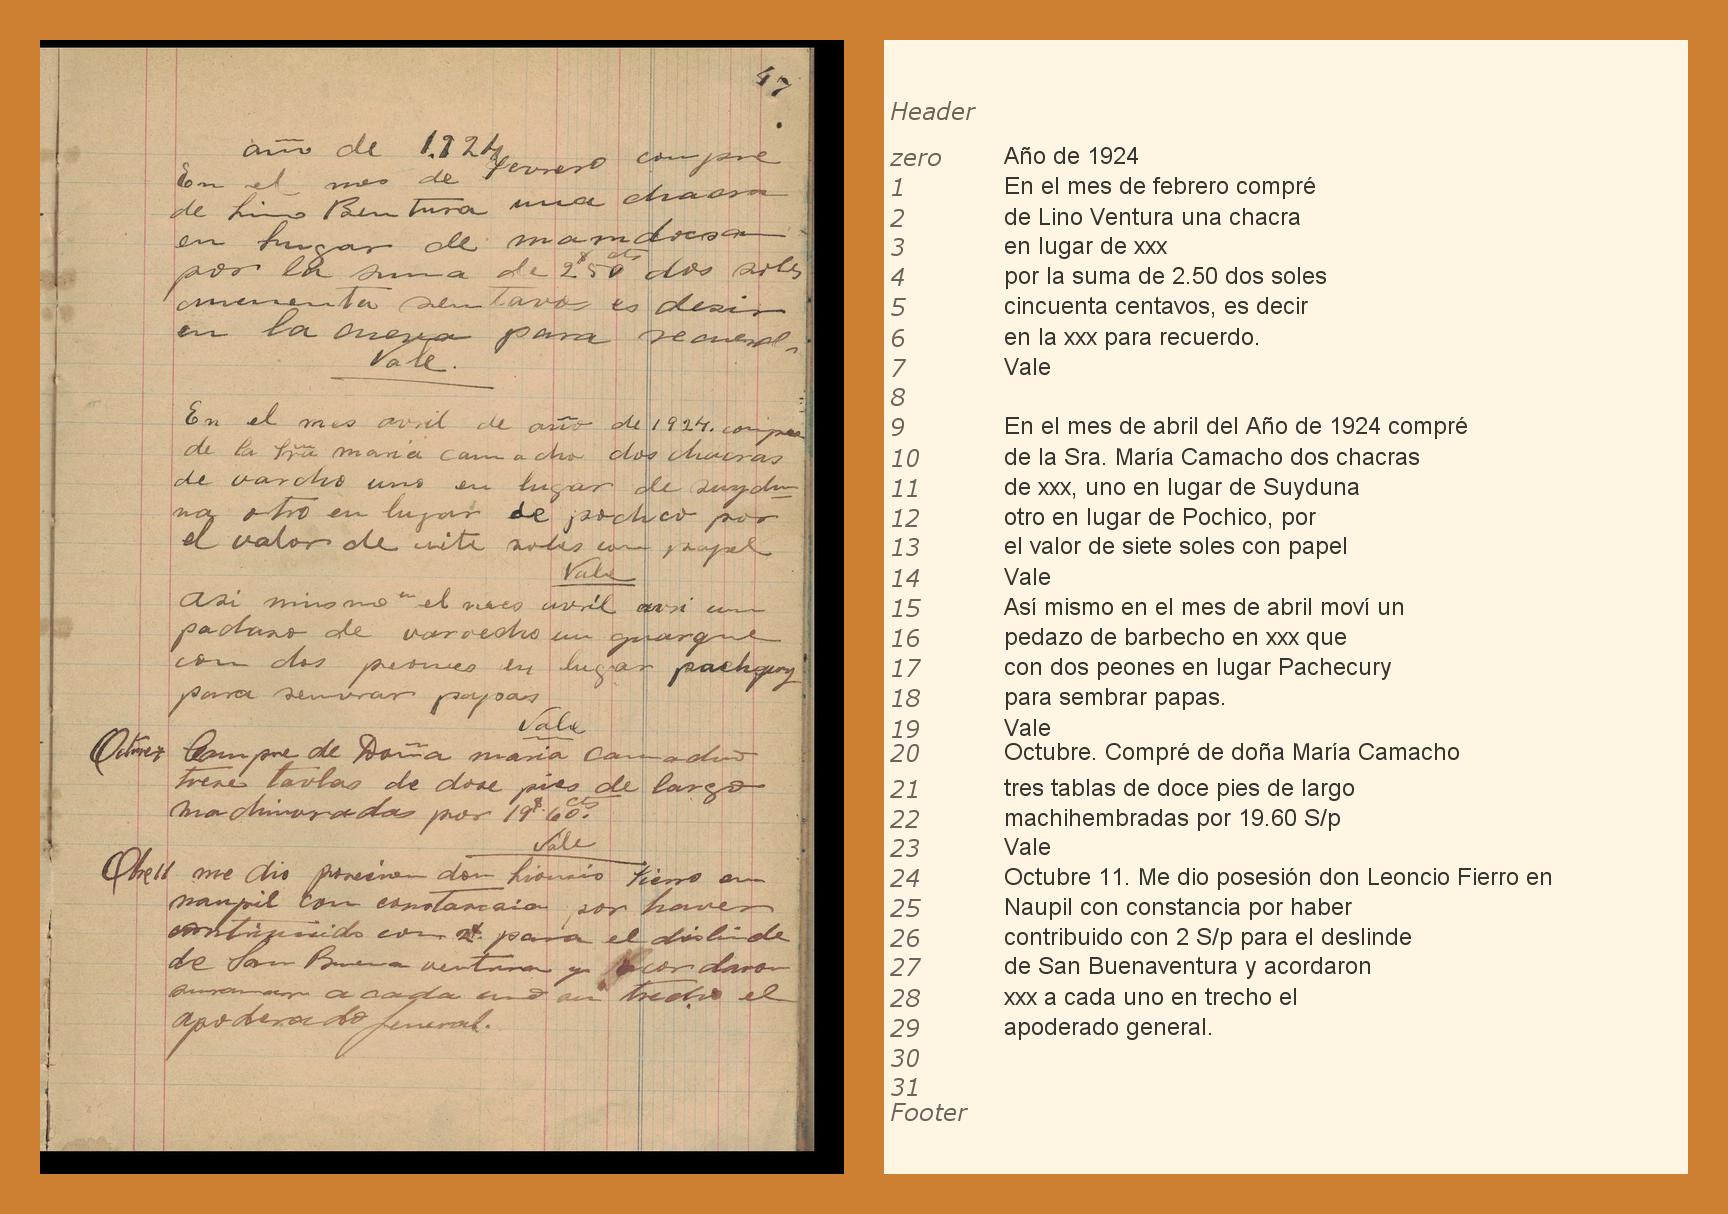 47
año de 1924
En el mes de febrero compre
de Lino Ben tura una chacra
en lugar de
por la suma de 2 50 cts dos soles
sentavos es desir
en la para
Vale.
En el mes avril de año de 1924. compre
de la Sra maria camacho dos chacras
de varcho uno en lugar de suydu
na otro en lugar de pochco por
el valor de soles con papel
Vale
Asi mismo en el mes avril un
padaso de varvecho en que
con dos peones en lugar
para senvrar papas
Vale
Compre de Doña maria camacho
trese tavlas de dose pies de largo
por 19 60 cts
Vale
me dio don Fierro en
naupil con por haver
con 2 para el deslinde
de San Buena ventura y
a cada uno el
apoderado general.
Header
zero Año de 1924
1 En el mes de febrero compré
2 de Lino Ventura una chacra
3 en lugar de xxx
4 por la suma de 2.50 dos soles
5 cincuenta centavos, es decir
6 en la xxx para recuerdo.
7 Vale
8
9 En el mes de abril del Año de 1924 compré
10 de la Sra. María Camacho dos chacras
11 de xxx, uno en lugar de Suyduna
12 otro en lugar de Pochico, por
13 el valor de siete soles con papel
14 Vale
15 Así mismo en el mes de abril moví un
16 pedazo de barbecho en xxx que
17 con dos peones en lugar Pachecury
18 para sembrar papas.
19 Vale
20 Octubre. Compré de doña María Camacho
21 tres tablas de doce pies de largo
22 machihembradas por 19.60 S/p
23 Vale
24 Octubre 11. Me dio posesión don Leoncio Fierro en
25 Naupil con constancia por haber
26 contribuido con 2 S/p para el deslinde
27 de San Buenaventura y acordaron
28 xxx a cada uno en trecho el
29 apoderado general.
30
31
Footer